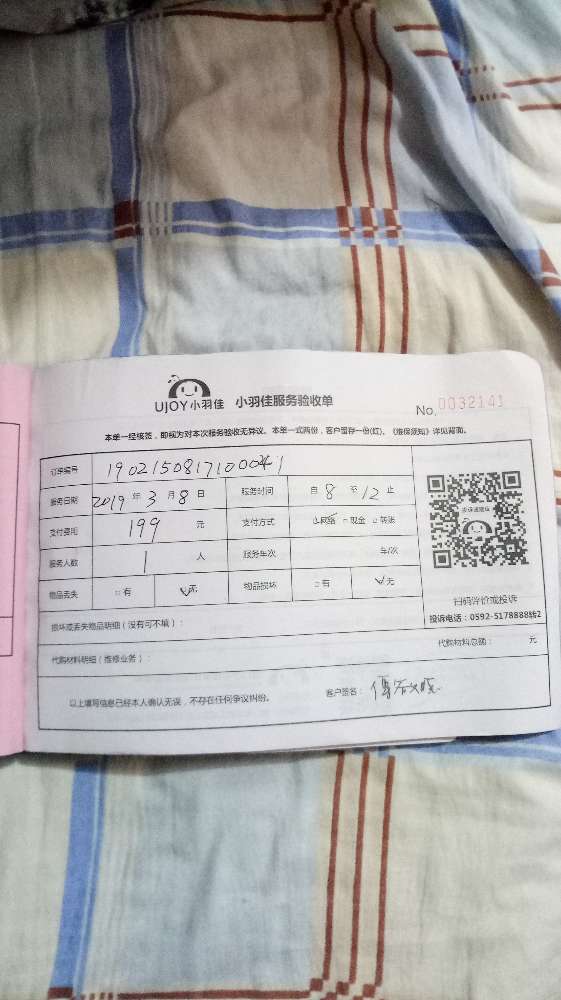 UJOY小羽佳 小羽佳服务验收单 No. 0032141
本单一经签签，即视为对本次服务验收无异议。本单一式两份，客户留存一份(红)。《维保须知》详见背面。
订单编号 1902150817100041
服务日期 2019 年 3 月 8 日 服务时间 自 8 至 12 止
支付费用 199 元 支付方式 ☑网络 □现金 □转账
服务人数 1 人 服务年次 年/次
物品丢失 □有 ☑无 物品损坏 □有 ☑无
扫码评价或投诉
投诉电话：0592-5178888转2
损坏或丢失物品明细（没有可不填）：
代购材料明细（维修业务）： 代购材料总额： 元
以上填写信息已经本人确认无误，不存在任何争议纠纷。 客户签名：